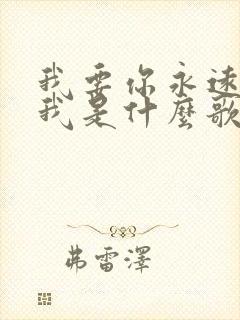 我要你永遠
我是什麼歌
弗雷澤